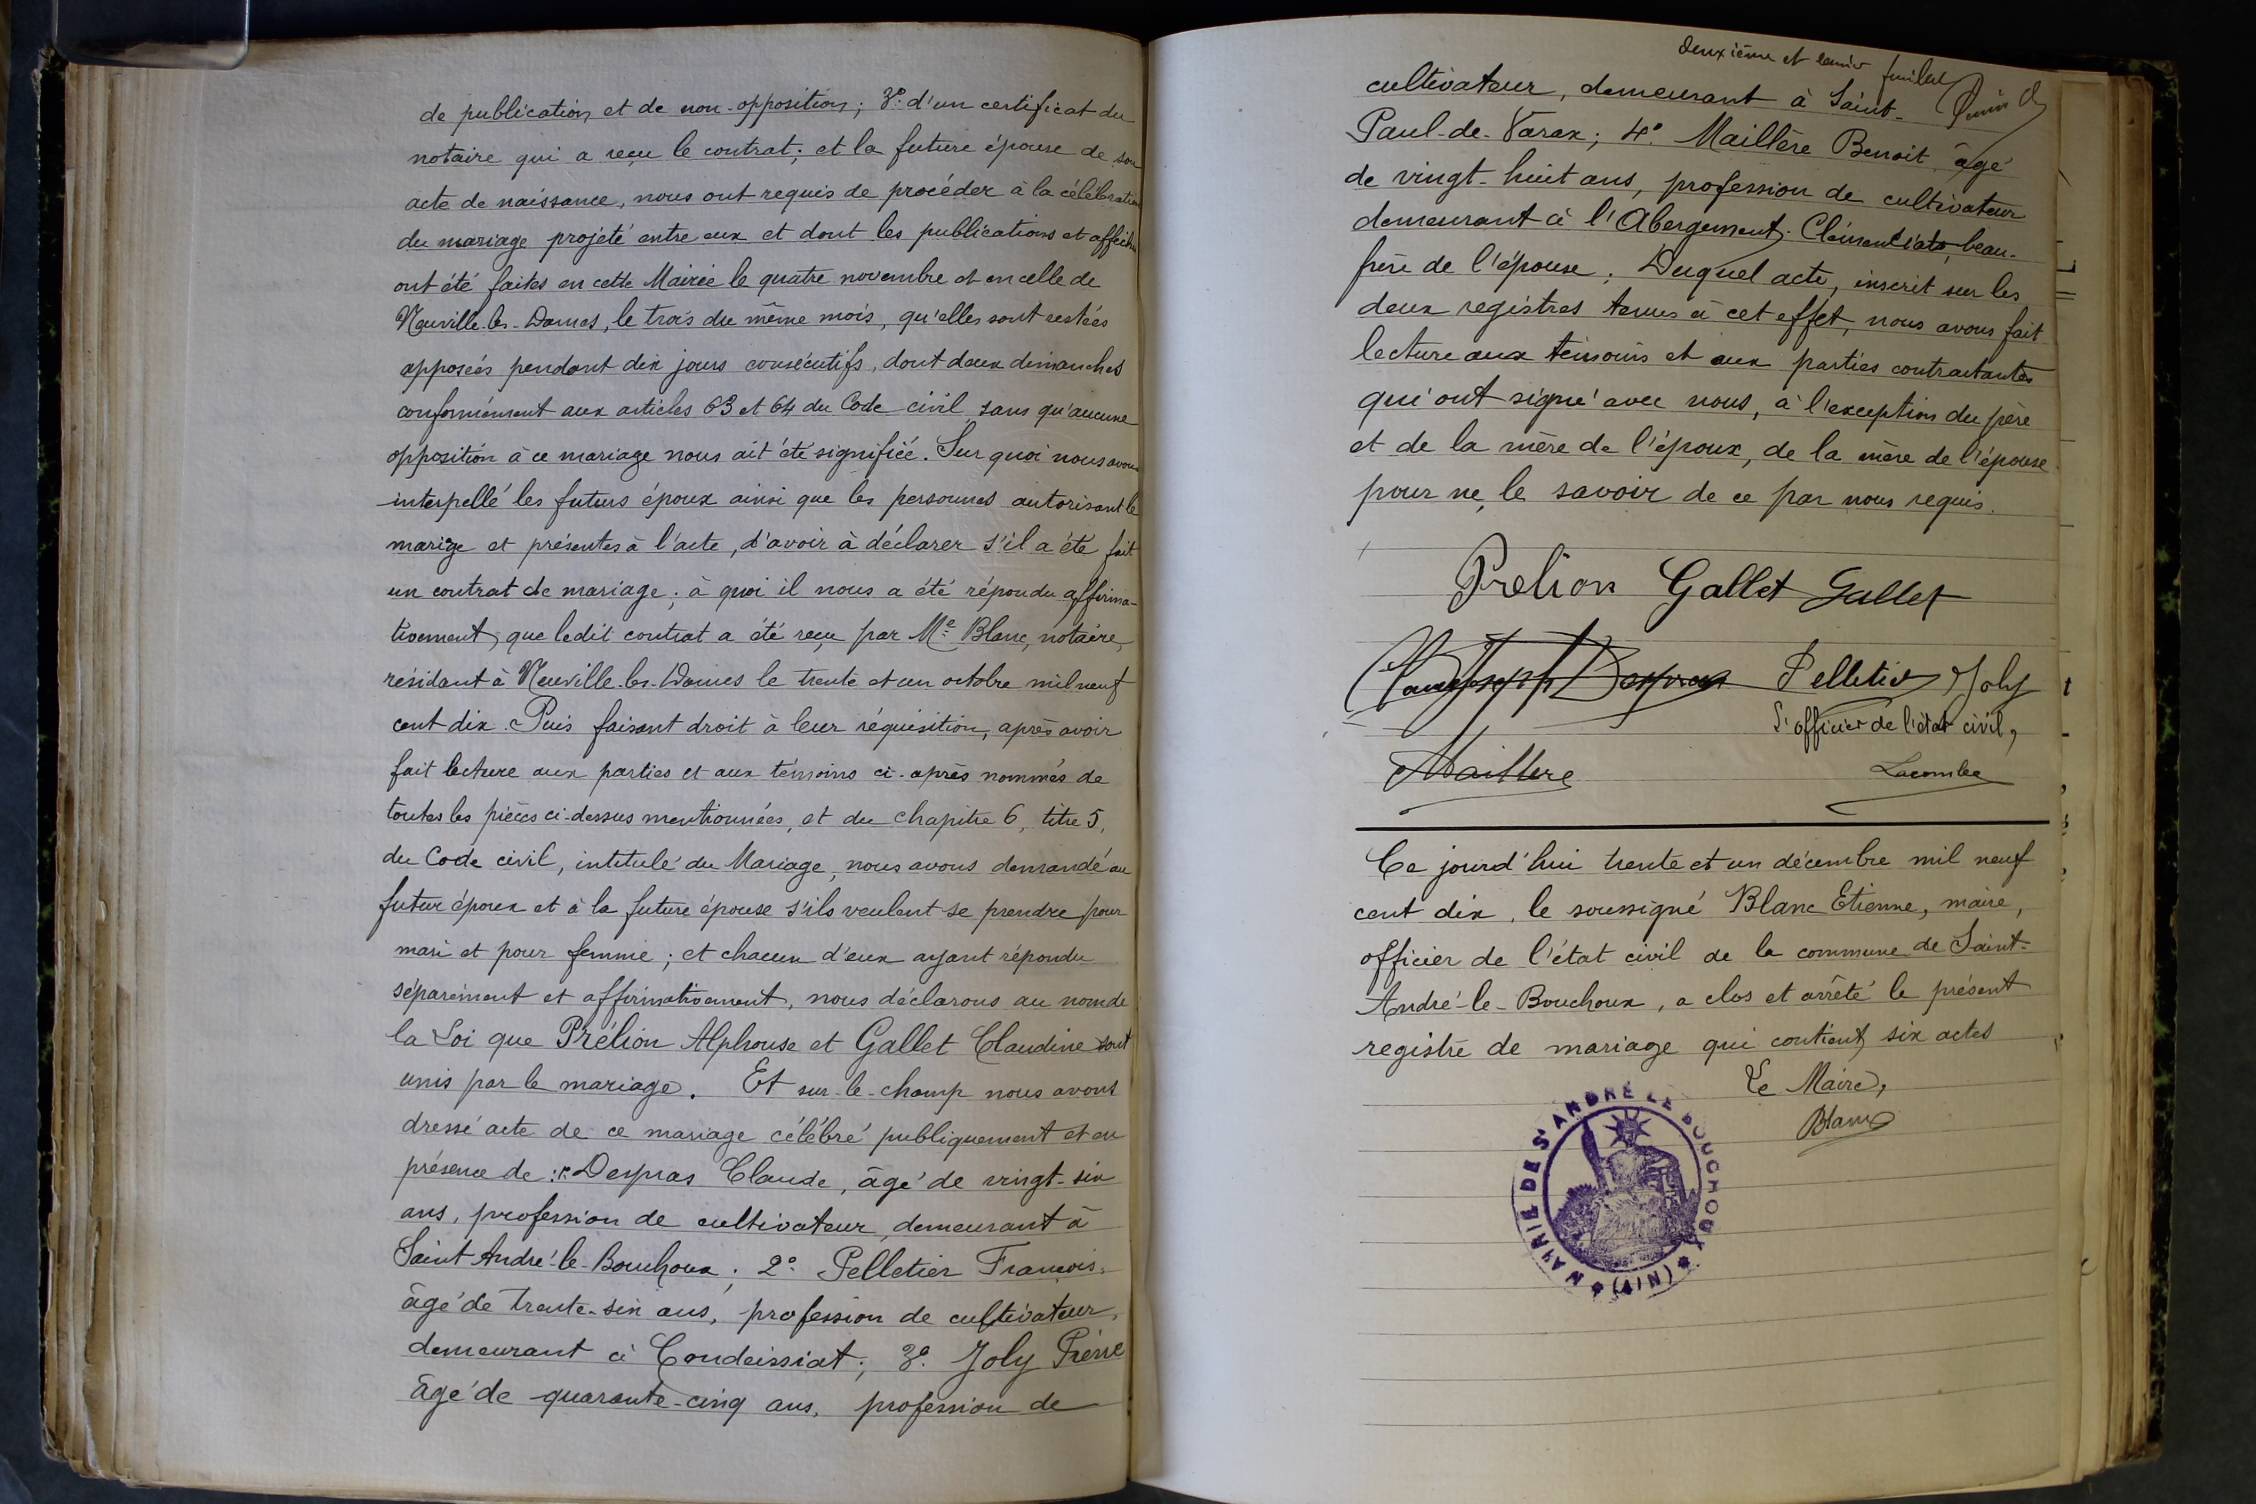 de publication et de non-opposition; 3°: d'un certificat du
notaire qui a reçu le contrat; et la future épouse de son
acte de naissance, nous ont requis de procéder à la célébration
du mariage projeté entre eux et dont les publications et affiches
ont été faites en cette Mairie le quatre novembre et en celle de
Neuville-les-Dames, le trois du même mois, qu'elles sont restées
apposées pendant dix jours consécutifs, dont deux dimanches
conformément aux articles 63 et 64 du Code civil, sans qu'aucune
opposition à ce mariage nous ait été signifiée. Sur quoi nous avons
interpellé les futurs époux ainsi que les personnes autorisant le
marige et présentes à l'acte, d'avoir à déclarer s'il a été fait
un contrat de mariage; à quoi il nous a été répondu affirma-
tivement, que ledit contrat a été reçu par Me Blanc, notaire,
résidant à Neuville-les-Dames le trente et un octobre mil neuf
cent dix. Puis faisant droit à leur réquisition, après avoir
fait lecture aux parties et aux témoins ci-après nommés de
toutes les pièces ci-dessus mentionnées, et du chapitre 6, titre 5,
du Code civil, intitulé du Mariage, nous avons demandé au
futur époux et à la future épouse s'ils veulent se prendre pour
mari et pour femme; et chacun d'eux ayant répondu
séparément et affirmativement, nous déclarons au nom de
la Loi que Prélion Alphonse et Gallet Claudine sont
unis par le mariage. Et sur-le-champ nous avons
dressé acte de ce mariage célébré publiquement et en
présence de: Despras Claude, âgé de vingt-six
ans, profession de cultivateur, demeurant à
Saint André-le-Bouchoux; 2°: Pelletier François,
âgé de trente-six ans, profession de cultivateur,
demeurant à Condeissiat; 3°. Joly Pierre
âgé de quarante-cinq ans, profession de
deuxième et feuillet
cultivateur, demeurant à Saint-
Paul-de-Varax; 4°. Maillère Benoit, âgé
de vingt-huit ans, profession de cultivateur
demeurant à l'Abergement-Clémenciat, beau-
frère de l'épouse. Duquel acte, inscrit sur les
deux registres tenus à cet effet, nous avons fait
lecture aux témoins et aux parties contractantes
qui ont signé avec nous, à l'exception du père
et de la mère de l'époux, de la mère de l'épouse
pour ne le savoir de ce par nous requis.
Prelion Gallet Gallet
Despras Pelletier Joly
L'officier de l'état civil,
Maillere Lacombe
Ce jourd'hui trente et un décembre mil neuf
cent dix, le soussigné Blanc Etienne, maire,
officier de l'état civil de la commune de Saint-
André-le-Bouchoux, a clos et arrêté le présent
registre de mariage qui contient six actes
Le Maire,
Blanc
MAIRIE DE St ANDRÉ LE BOUCHOUX (AIN)